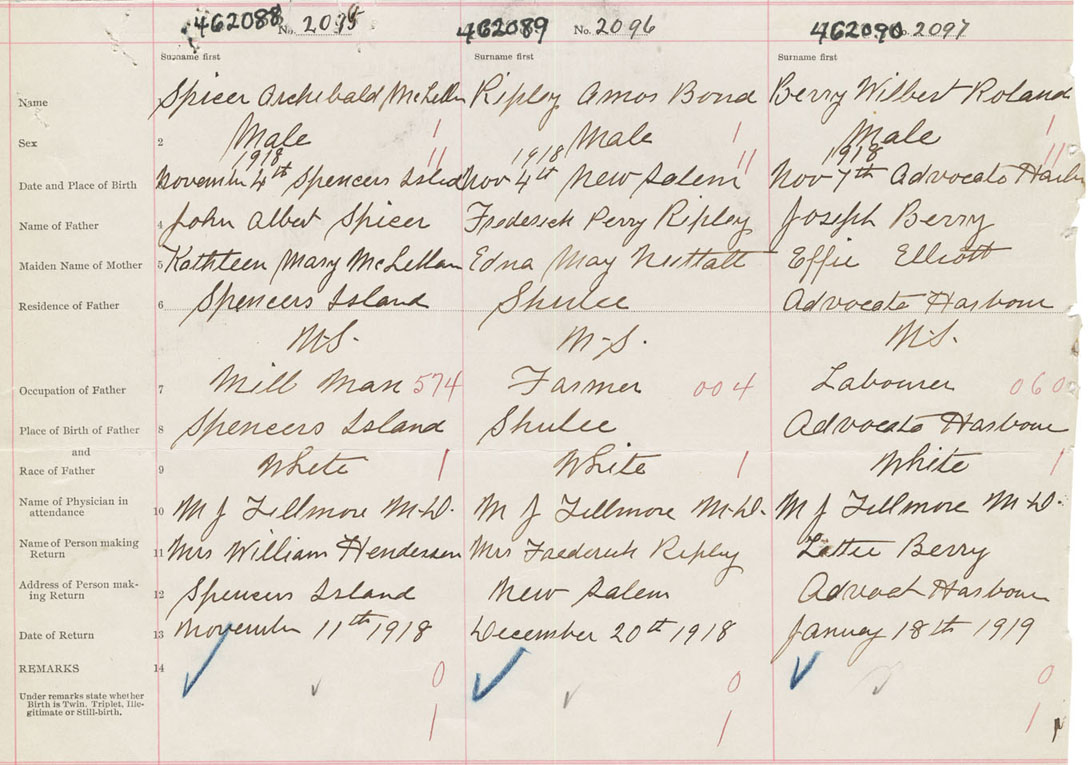 462088 No. 2095 462089 No. 2096 462090 No. 2097
Surname first Surname first Surname first
Name Spicer Archibald McLellan Ripley Amos Bond Berry Wilbert Roland
1 1 1
Sex 2 Male Male Male
1918 11 1918 11 1918 11
Date and Place of Birth November 4th Spencers Island Nov 4th New Salem Nov 7th Advocate Harbour
Name of Father 4 John Albert Spicer Frederick Perry Ripley Joseph Berry
Maiden Name of Mother 5 Kathleen Mary McLellan Edna May Nuttall Effie Elliott
Residence of Father 6 Spencers Island Shulee Advocate Harbour
M-S. M-S. M-S.
Occupation of Father 7 Mill Man 574 Farmer 004 Labourer 060
Place of Birth of Father 8 Spencers Island Shulee Advocate Harbour
and
Race of Father 9 White 1 White 1 White 1
Name of Physician in
attendance 10 M J Fillmore M-D. M J Fillmore M-D. M J Fillmore M-D.
Name of Person making
Return 11 Mrs William Henderson Mrs Frederick Ripley Lettie Berry
Address of Person mak-
ing Return 12 Spencers Island New Salem Advocat Harbour
Date of Return 13 November 11th 1918 December 20th 1918 January 18th 1919
REMARKS 14 0 0 0
Under remarks state whether
Birth is Twin. Triplet, Ille-
gitimate or Still-birth.
1 1 1